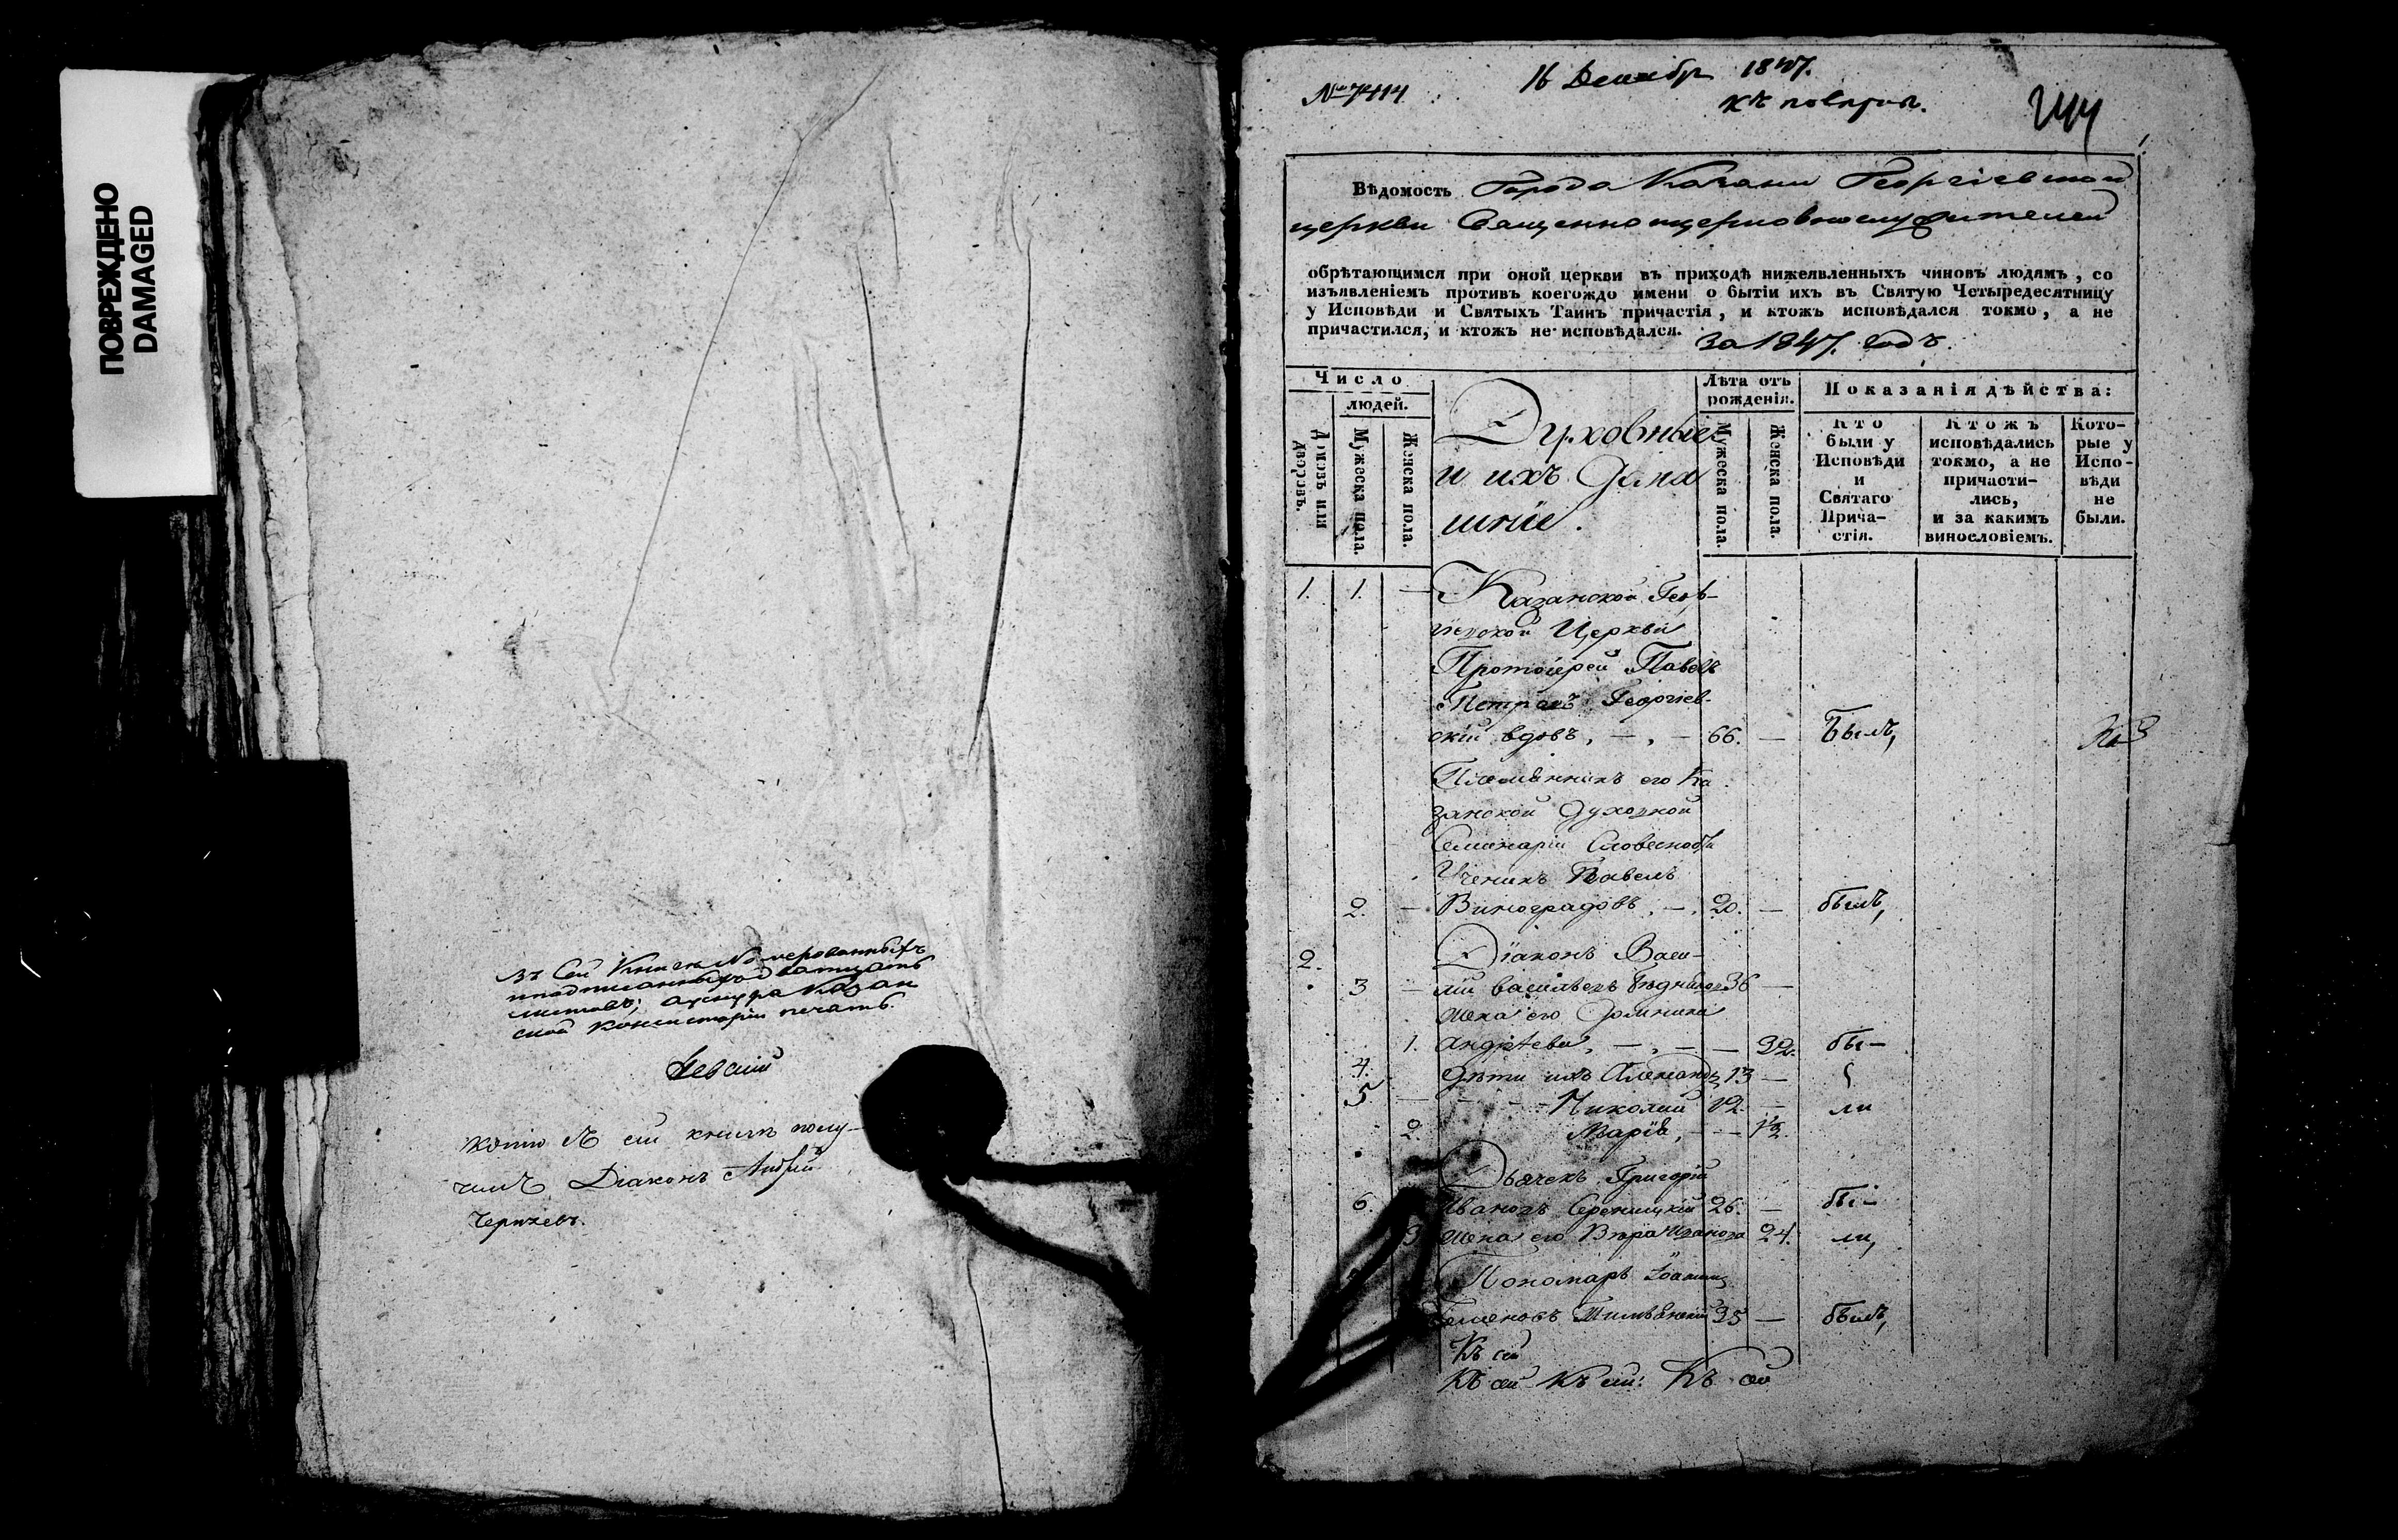 ПОВРЕЖДЕНО
DAMAGED
въ сей книге номерованныхъ
листовъ;
ской консисторіи печать.
копію съ сей книги полу-
чилъ Діаконъ Андрей
№ 7414
16 Декабр 1847.
къ повѣрки.
244
Вѣдомость Города Казани Георгіевской
церкви Священноцерковнослужителей
обрѣтающимся при оной церкви въ приходѣ нижеявленныхъ чиновъ людямъ, со
изъявленіемъ противъ коегождо имени о бытіи ихъ въ Святую Четыредесятницу
у Исповѣди и Святыхъ Таинъ причастія, и ктожъ исповѣдался токмо, а не
причастился, и ктожъ не исповѣдался. За 1847. годъ.
Число
людей.
Домовъ или дворовъ.
Мужеска пола.
Женска пола.
Духовные
и ихъ дома
шніе.
Лѣта отъ
рожденія.
Мужеска пола.
Женска пола.
Показанія дѣйства:
Кто
были у
Исповѣди
и
Святаго
Прича-
стія.
Ктожъ
исповѣдались
токмо, а не
причасти-
лись,
и за какимъ
винословіемъ.
Кото-
рые у
Испо-
вѣди
не
были.
1. 1. — Казанской Геор-
гіевской Церкви
Протоіерей Павелъ
Петровъ Георгіев-
скій вдовъ, — , — 66. — Былъ,
Племянникъ его Ка
занской Духовной
Семинаріи Словесности
Ученикъ Павелъ
2. — Виноградовъ, — . 20. — былъ,
2. Діаконъ Васи-
3 — лій Васильевъ 36 —
жена его Домника
1. Андрѣева, — , — — 32. бы—
4. дѣти ихъ Александръ 13 —
5 — Николай 12. — ли
2. Марія, — — 1/2.
Дьячекъ Григорій
6. Ивановъ 26. — бы—
3 жена его Вѣра Иванова 24. ли,
Пономарь Іоаннъ
Семеновъ 25 — былъ,
Къ сей
Къ сей Къ сей: Къ сей